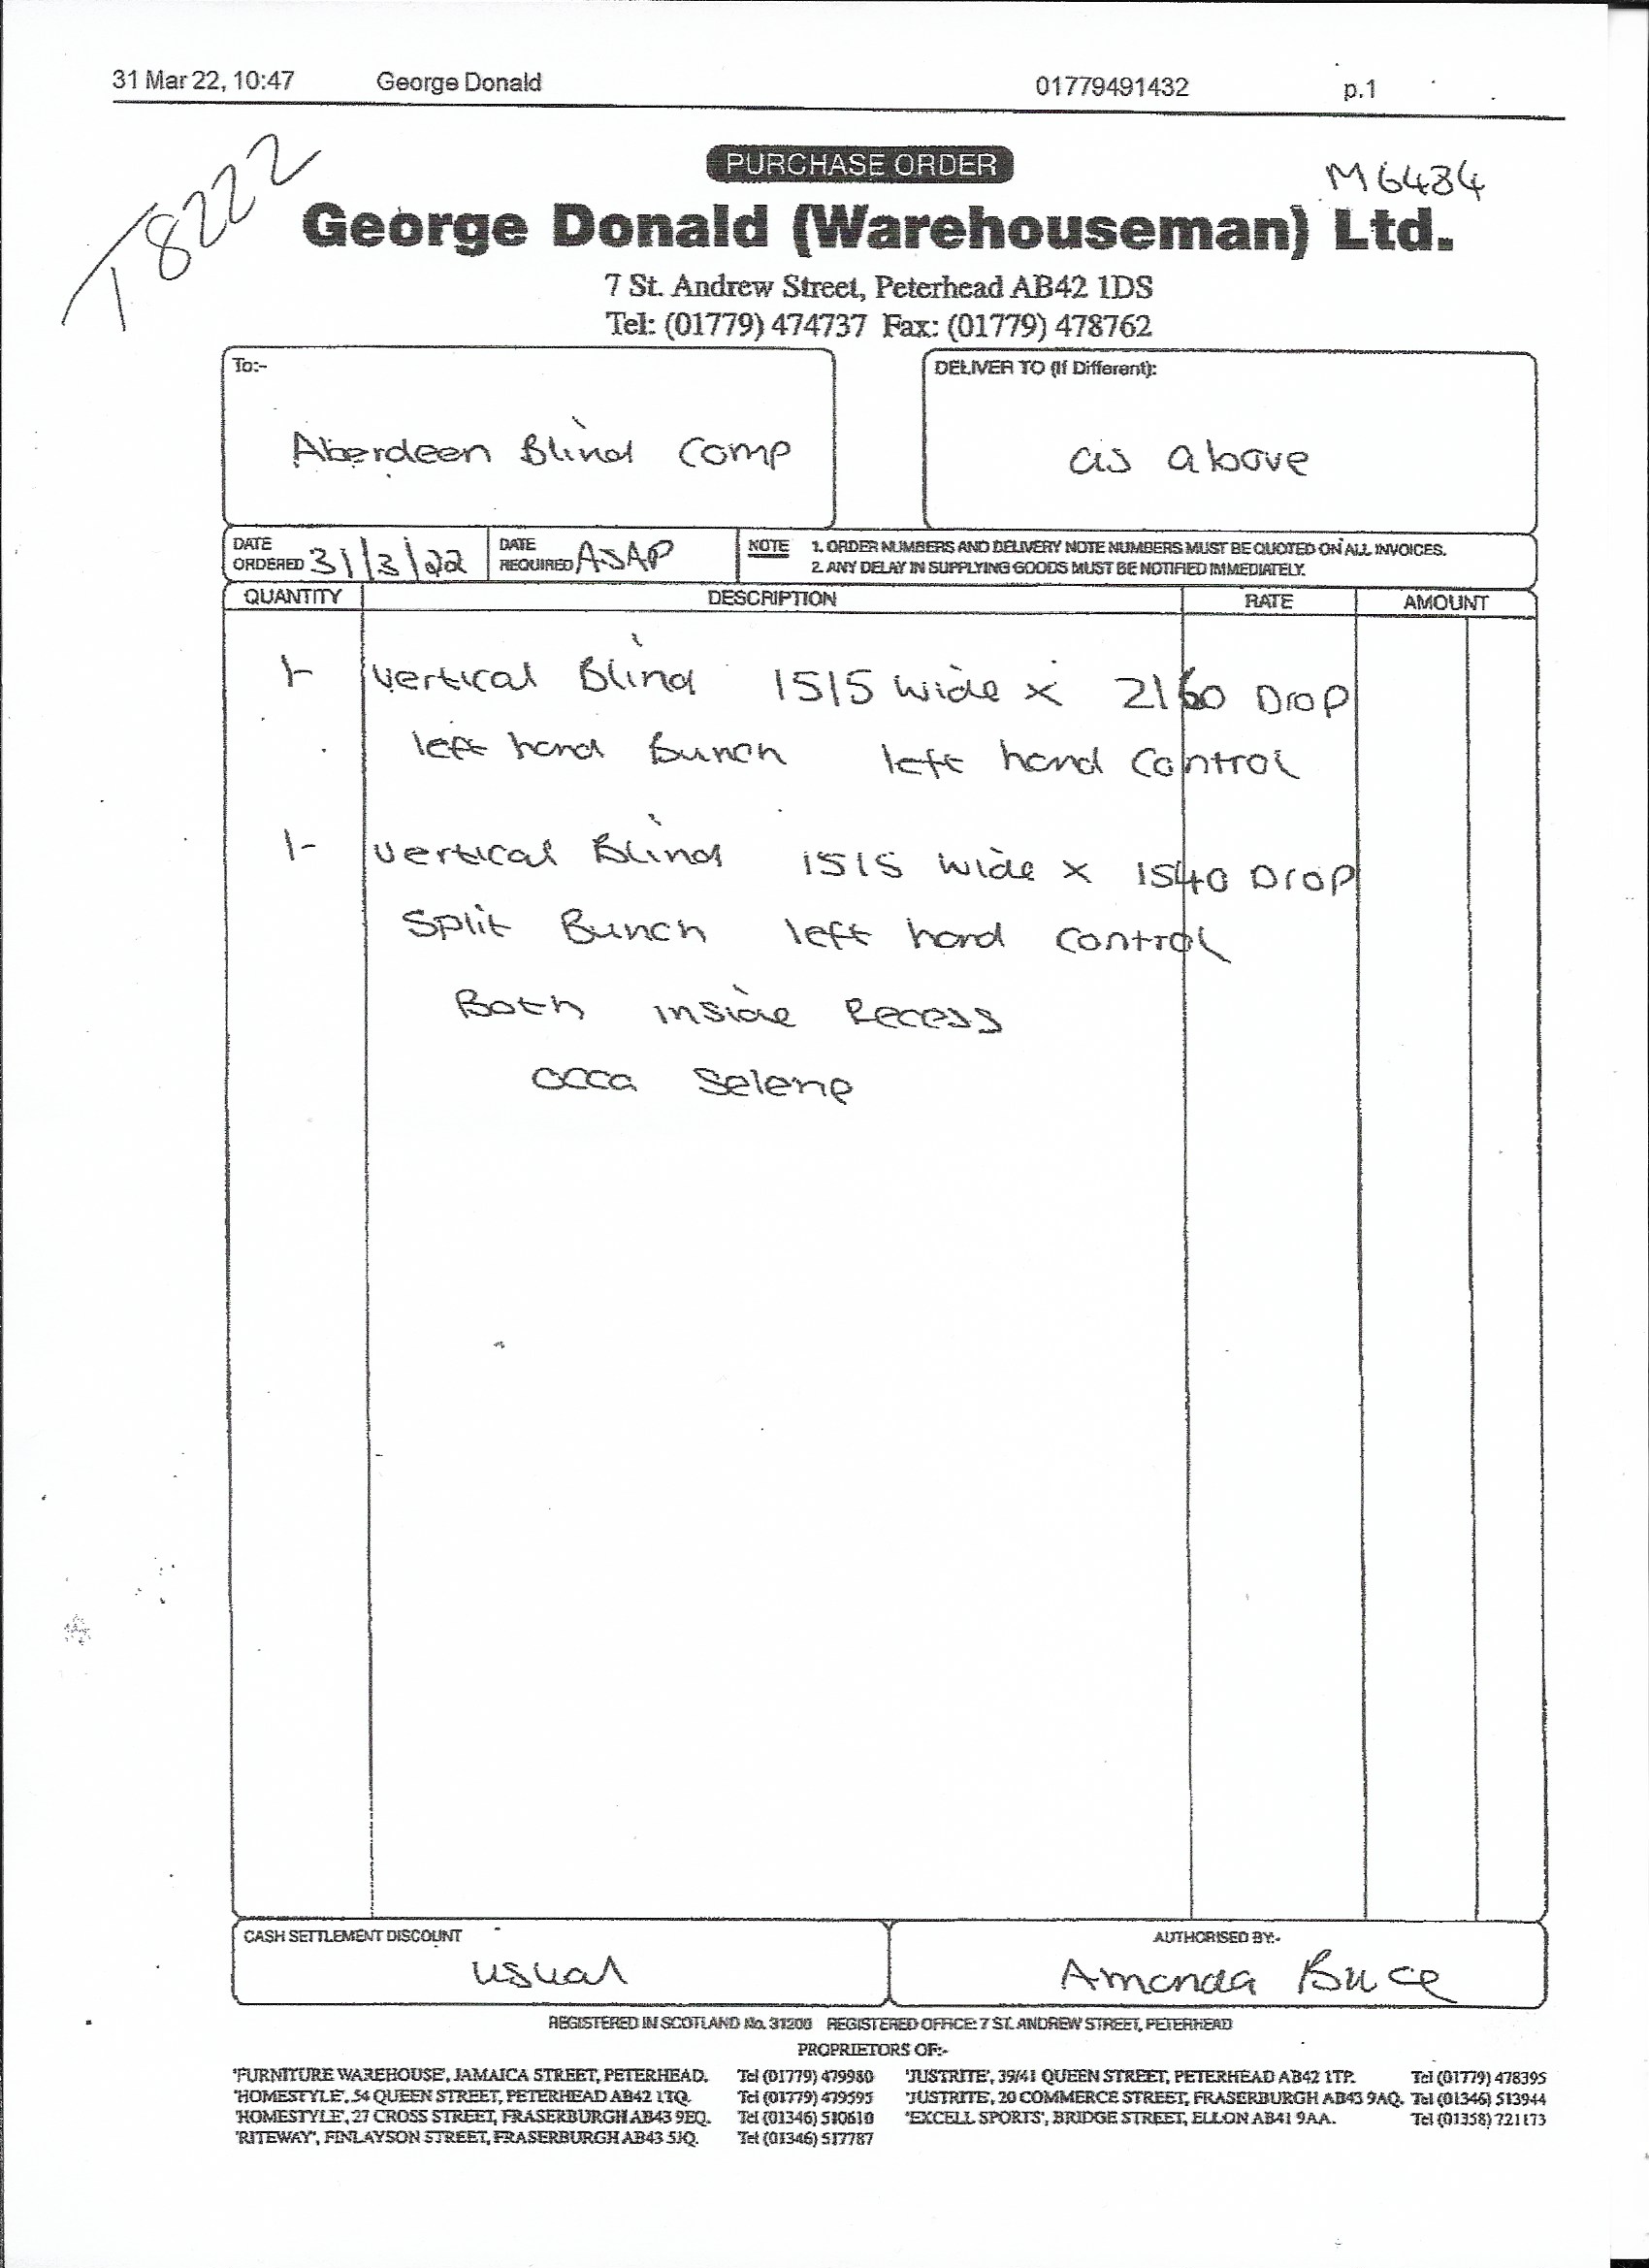 31 Mar 22, 10:47 George Donald 01779491432 p.1
T8222
PURCHASE ORDER
M6484
George Donald (Warehouseman) Ltd.
7 St. Andrew Street, Peterhead AB42 1DS
Tel: (01779) 474737 Fax: (01779) 478762
To:- DELIVER TO (If Different):
Aberdeen Blind Comp as above
DATE ORDERED 31/3/22 DATE REQUIRED ASAP NOTE 1. ORDER NUMBERS AND DELIVERY NOTE NUMBERS MUST BE QUOTED ON ALL INVOICES.
2. ANY DELAY IN SUPPLYING GOODS MUST BE NOTIFIED IMMEDIATELY.
QUANTITY DESCRIPTION RATE AMOUNT
1- Vertical Blind 1515 wide x 2160 Drop
left hand Bunch left hand Control
1- Vertical Blind 1515 wide x 1540 Drop
Split Bunch left hand Control
Both inside Recess
Selene
CASH SETTLEMENT DISCOUNT AUTHORISED BY:-
usual Amanda Bruce
REGISTERED IN SCOTLAND No. 31200 REGISTERED OFFICE: 7 ST. ANDREW STREET, PETERHEAD
PROPRIETORS OF:-
'FURNITURE WAREHOUSE', JAMAICA STREET, PETERHEAD. Tel (01779) 479980 'JUSTRITE', 39/41 QUEEN STREET, PETERHEAD AB42 1TP. Tel (01779) 478395
'HOMESTYLE', 54 QUEEN STREET, PETERHEAD AB42 1TQ. Tel (01779) 479595 'JUSTRITE', 20 COMMERCE STREET, FRASERBURGH AB43 9AQ. Tel (01346) 513944
'HOMESTYLE', 27 CROSS STREET, FRASERBURGH AB43 9EQ. Tel (01346) 510610 'EXCELL SPORTS', BRIDGE STREET, ELLON AB41 9AA. Tel (01358) 721173
'RITEWAY', FINLAYSON STREET, FRASERBURGH AB43 5JQ. Tel (01346) 517787